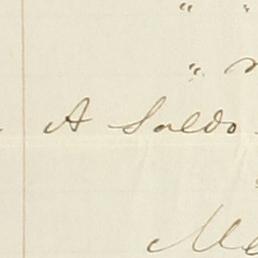 " "
"
A Saldo
Me